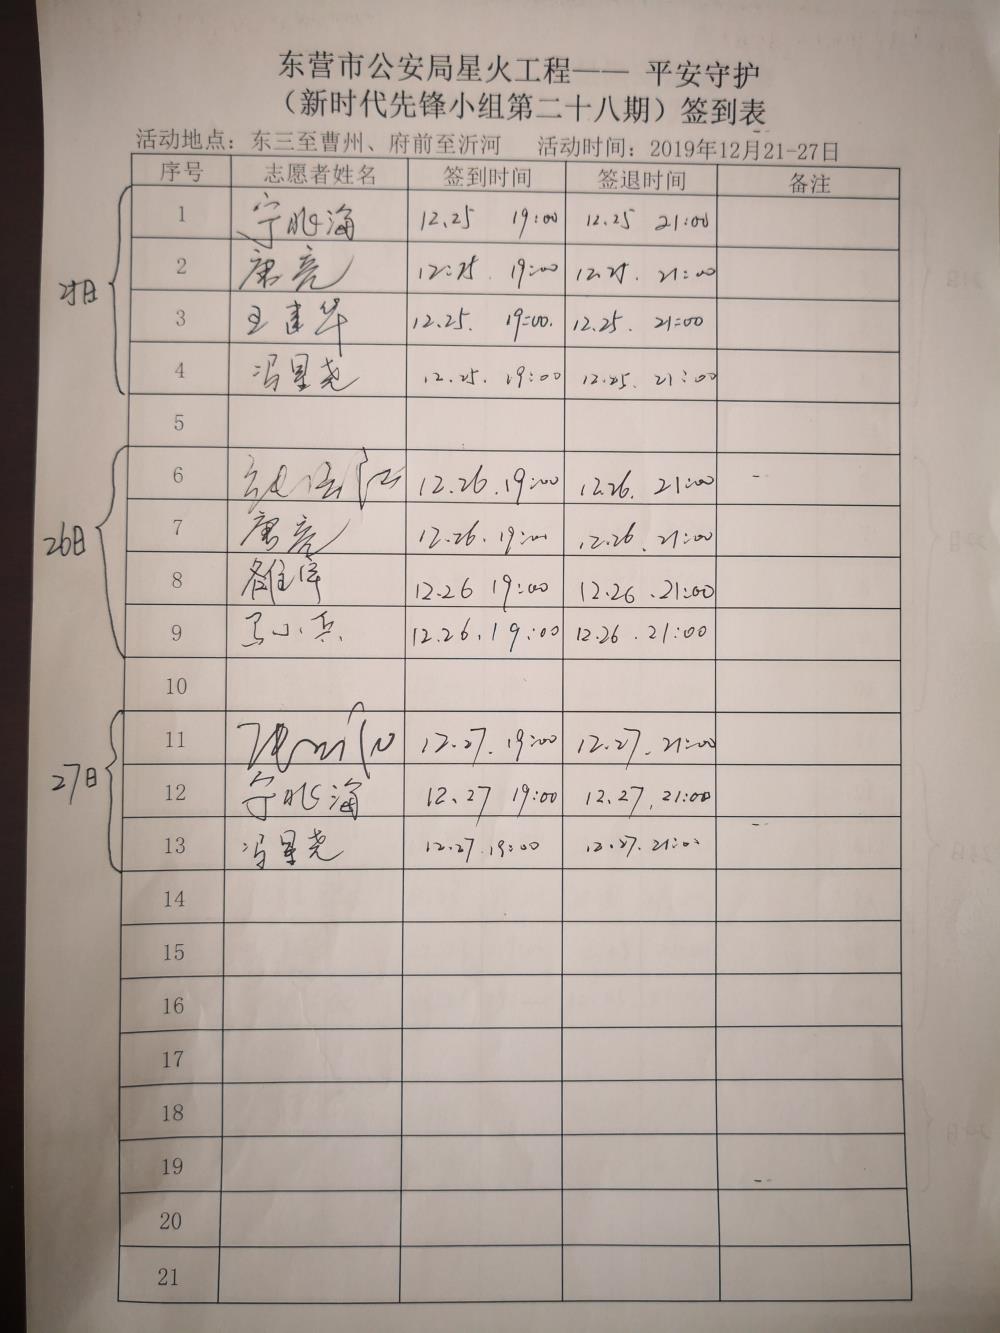 东营市公安局星火工程—— 平安守护
（新时代先锋小组第二十八期）签到表
活动地点：东三至曹州、府前至沂河 活动时间：2019年12月21-27日
序号 志愿者姓名 签到时间 签退时间 备注
25日
1 宁兆海 12.25 19:00 12.25 21:00
2 唐亮 12.25. 19:00 12.25. 21:00
3 王建华 12.25. 19:00. 12.25. 21:00
4 冯星尧 12.25. 19:00 12.25. 21:00
5
26日
6 12.26.19:00 12.26. 21:00
7 唐亮 12.26.19:00 12.26.21:00
8 12.26 19:00 12.26.21:00
9 马小兵 12.26.19:00 12.26.21:00
10
27日
11 12.27.19:00 12.27.21:00
12 宁兆海 12.27 19:00 12.27.21:00
13 冯星尧 12.27.19:00 12.27.21:00
14
15
16
17
18
19
20
21